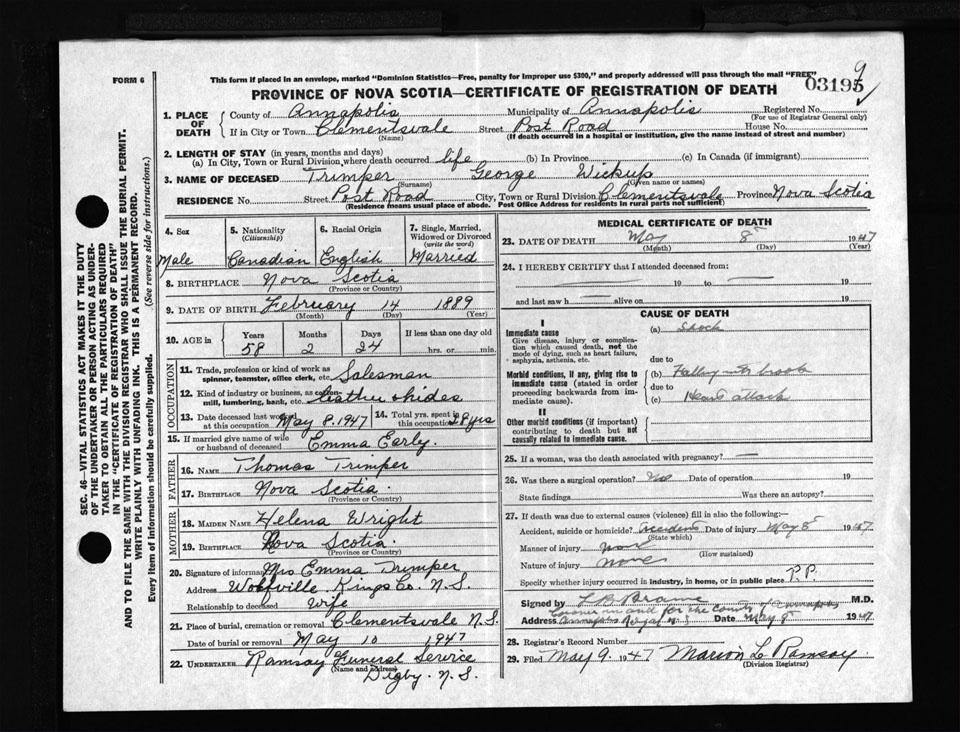 FORM 6
This form if placed in an envelope, marked "Dominion Statistics—Free, penalty for improper use $300," and properly addressed will pass through the mail "FREE"
9
03195
PROVINCE OF NOVA SCOTIA—CERTIFICATE OF REGISTRATION OF DEATH
1. PLACE OF DEATH
County of Annapolis Municipality of Annapolis Registered No.
(For use of Registrar General only)
If in City or Town Clementsvale Street Post Road House No.
(Name) (If death occurred in a hospital or institution, give the name instead of street and number)
2. LENGTH OF STAY (in years, months and days)
(a) In City, Town or Rural Division, where death occurred life (b) In Province (c) In Canada (if immigrant)
3. NAME OF DECEASED Trimper George Wickup
(Surname) (Given name or names)
RESIDENCE No. Street Post Road City, Town or Rural Division Clementsvale Province Nova Scotia
(Residence means usual place of abode. Post Office Address for residents in rural parts not sufficient)
4. Sex
Male
5. Nationality
(Citizenship)
Canadian
6. Racial Origin
English
7. Single, Married, Widowed or Divorced
(write the word)
Married
8. BIRTHPLACE Nova Scotia
(Province or Country)
9. DATE OF BIRTH February 14 1889
(Month) (Day) (Year)
10. AGE in Years Months Days If less than one day old
58 2 24 hrs. or min.
OCCUPATION
11. Trade, profession or kind of work as spinner, teamster, office clerk, etc. Salesman
12. Kind of industry or business, as cotton-mill, lumbering, bank, etc. Leather &hides
13. Date deceased last worked at this occupation May 8. 1947
14. Total yrs. spent in this occupation yrs
15. If married give name of wife or husband of deceased Emma Early.
FATHER
16. NAME Thomas Trimper
17. BIRTHPLACE Nova Scotia.
(Province or Country)
MOTHER
18. MAIDEN NAME Helena Wright
19. BIRTHPLACE Nova Scotia.
(Province or Country)
20. Signature of informant Mrs Emma Trimper
Address Wolfville Kings Co. N.S.
Relationship to deceased Wife
21. Place of burial, cremation or removal Clementsvale N.S.
Date of burial or removal May 10 1947
22. UNDERTAKER Ramsay Funeral Service
(Name and address)
Digby. N.S.
MEDICAL CERTIFICATE OF DEATH
23. DATE OF DEATH May 8 1947
(Month) (Day) (Year)
24. I HEREBY CERTIFY that I attended deceased from:
19 to 19
and last saw h alive on 19
CAUSE OF DEATH
I
Immediate cause
Give disease, injury or complication which caused death, not the mode of dying, such as heart failure, asphyxia, asthenia, etc.
(a) Shock
due to
Morbid conditions, if any, giving rise to immediate cause (stated in order proceeding backwards from immediate cause).
(b) Falling into brook
due to
(c) Heart attack
II
Other morbid conditions (if important) contributing to death but not causally related to immediate cause.
25. If a woman, was the death associated with pregnancy?
26. Was there a surgical operation? no Date of operation 19
State findings Was there an autopsy?
27. If death was due to external causes (violence) fill in also the following:—
Accident, suicide or homicide? accident Date of injury May 8 1947
(State which)
Manner of injury
(How sustained)
Nature of injury none
Specify whether injury occurred in industry, in home, or in public place P.P.
Signed by M.D.
Coroner in and for the County of Annapolis
Address Annapolis Royal N.S Date May 8 1947
28. Registrar's Record Number
29. Filed May 9. 1947 Marion L Ramsay.
(Division Registrar)
SEC. 46—VITAL STATISTICS ACT MAKES IT THE DUTY
OF THE UNDERTAKER OR PERSON ACTING AS UNDER-
TAKER TO OBTAIN ALL THE PARTICULARS REQUIRED
IN THE "CERTIFICATE OF REGISTRATION OF DEATH"
AND TO FILE THE SAME WITH THE DIVISION REGISTRAR WHO SHALL ISSUE THE BURIAL PERMIT.
WRITE PLAINLY WITH UNFADING INK. THIS IS A PERMANENT RECORD.
Every item of information should be carefully supplied. (See reverse side for instructions.)